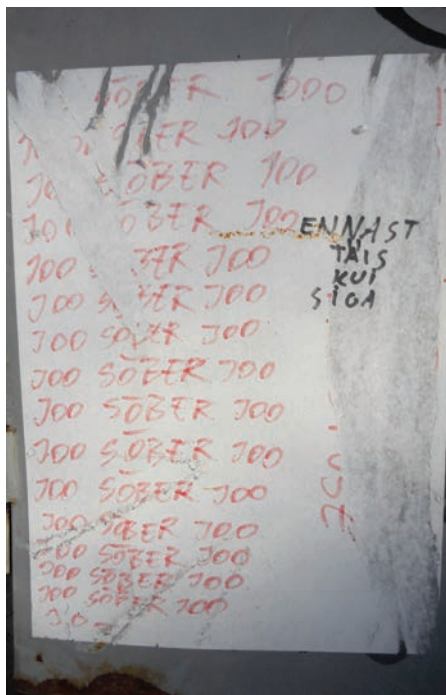 SÕBER JOOO
SÕBER JOO
SÕBER JOO
JOO SÕBER JOO
JOO SÕBER JOO
JOO SÕBER JOO
JOO SÕBER JOO
JOO SÕBER JOO
JOO SÕBER JOO
JOO SÕBER JOO
JOO SÕBER JOO
JOO SÕBER JOO
JOO SÕBER JOO
JOO SÕBER JOO
JOO SÕBER JOO
JO
ENNAST
TÄIS
KUI
SIGA